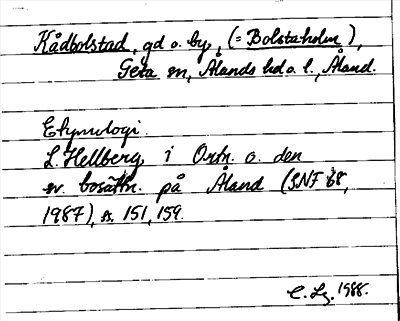 Kådbolstad, gd o. by, (= Bolstaholm),
Geta sn, Ålands hd o. l., Åland.
Etymologi.
L. Hellberg i Ortn. o. den
sv. bosättn. på Åland (SNF 68,
1987), s. 151, 159.
C. Lg. 1988.